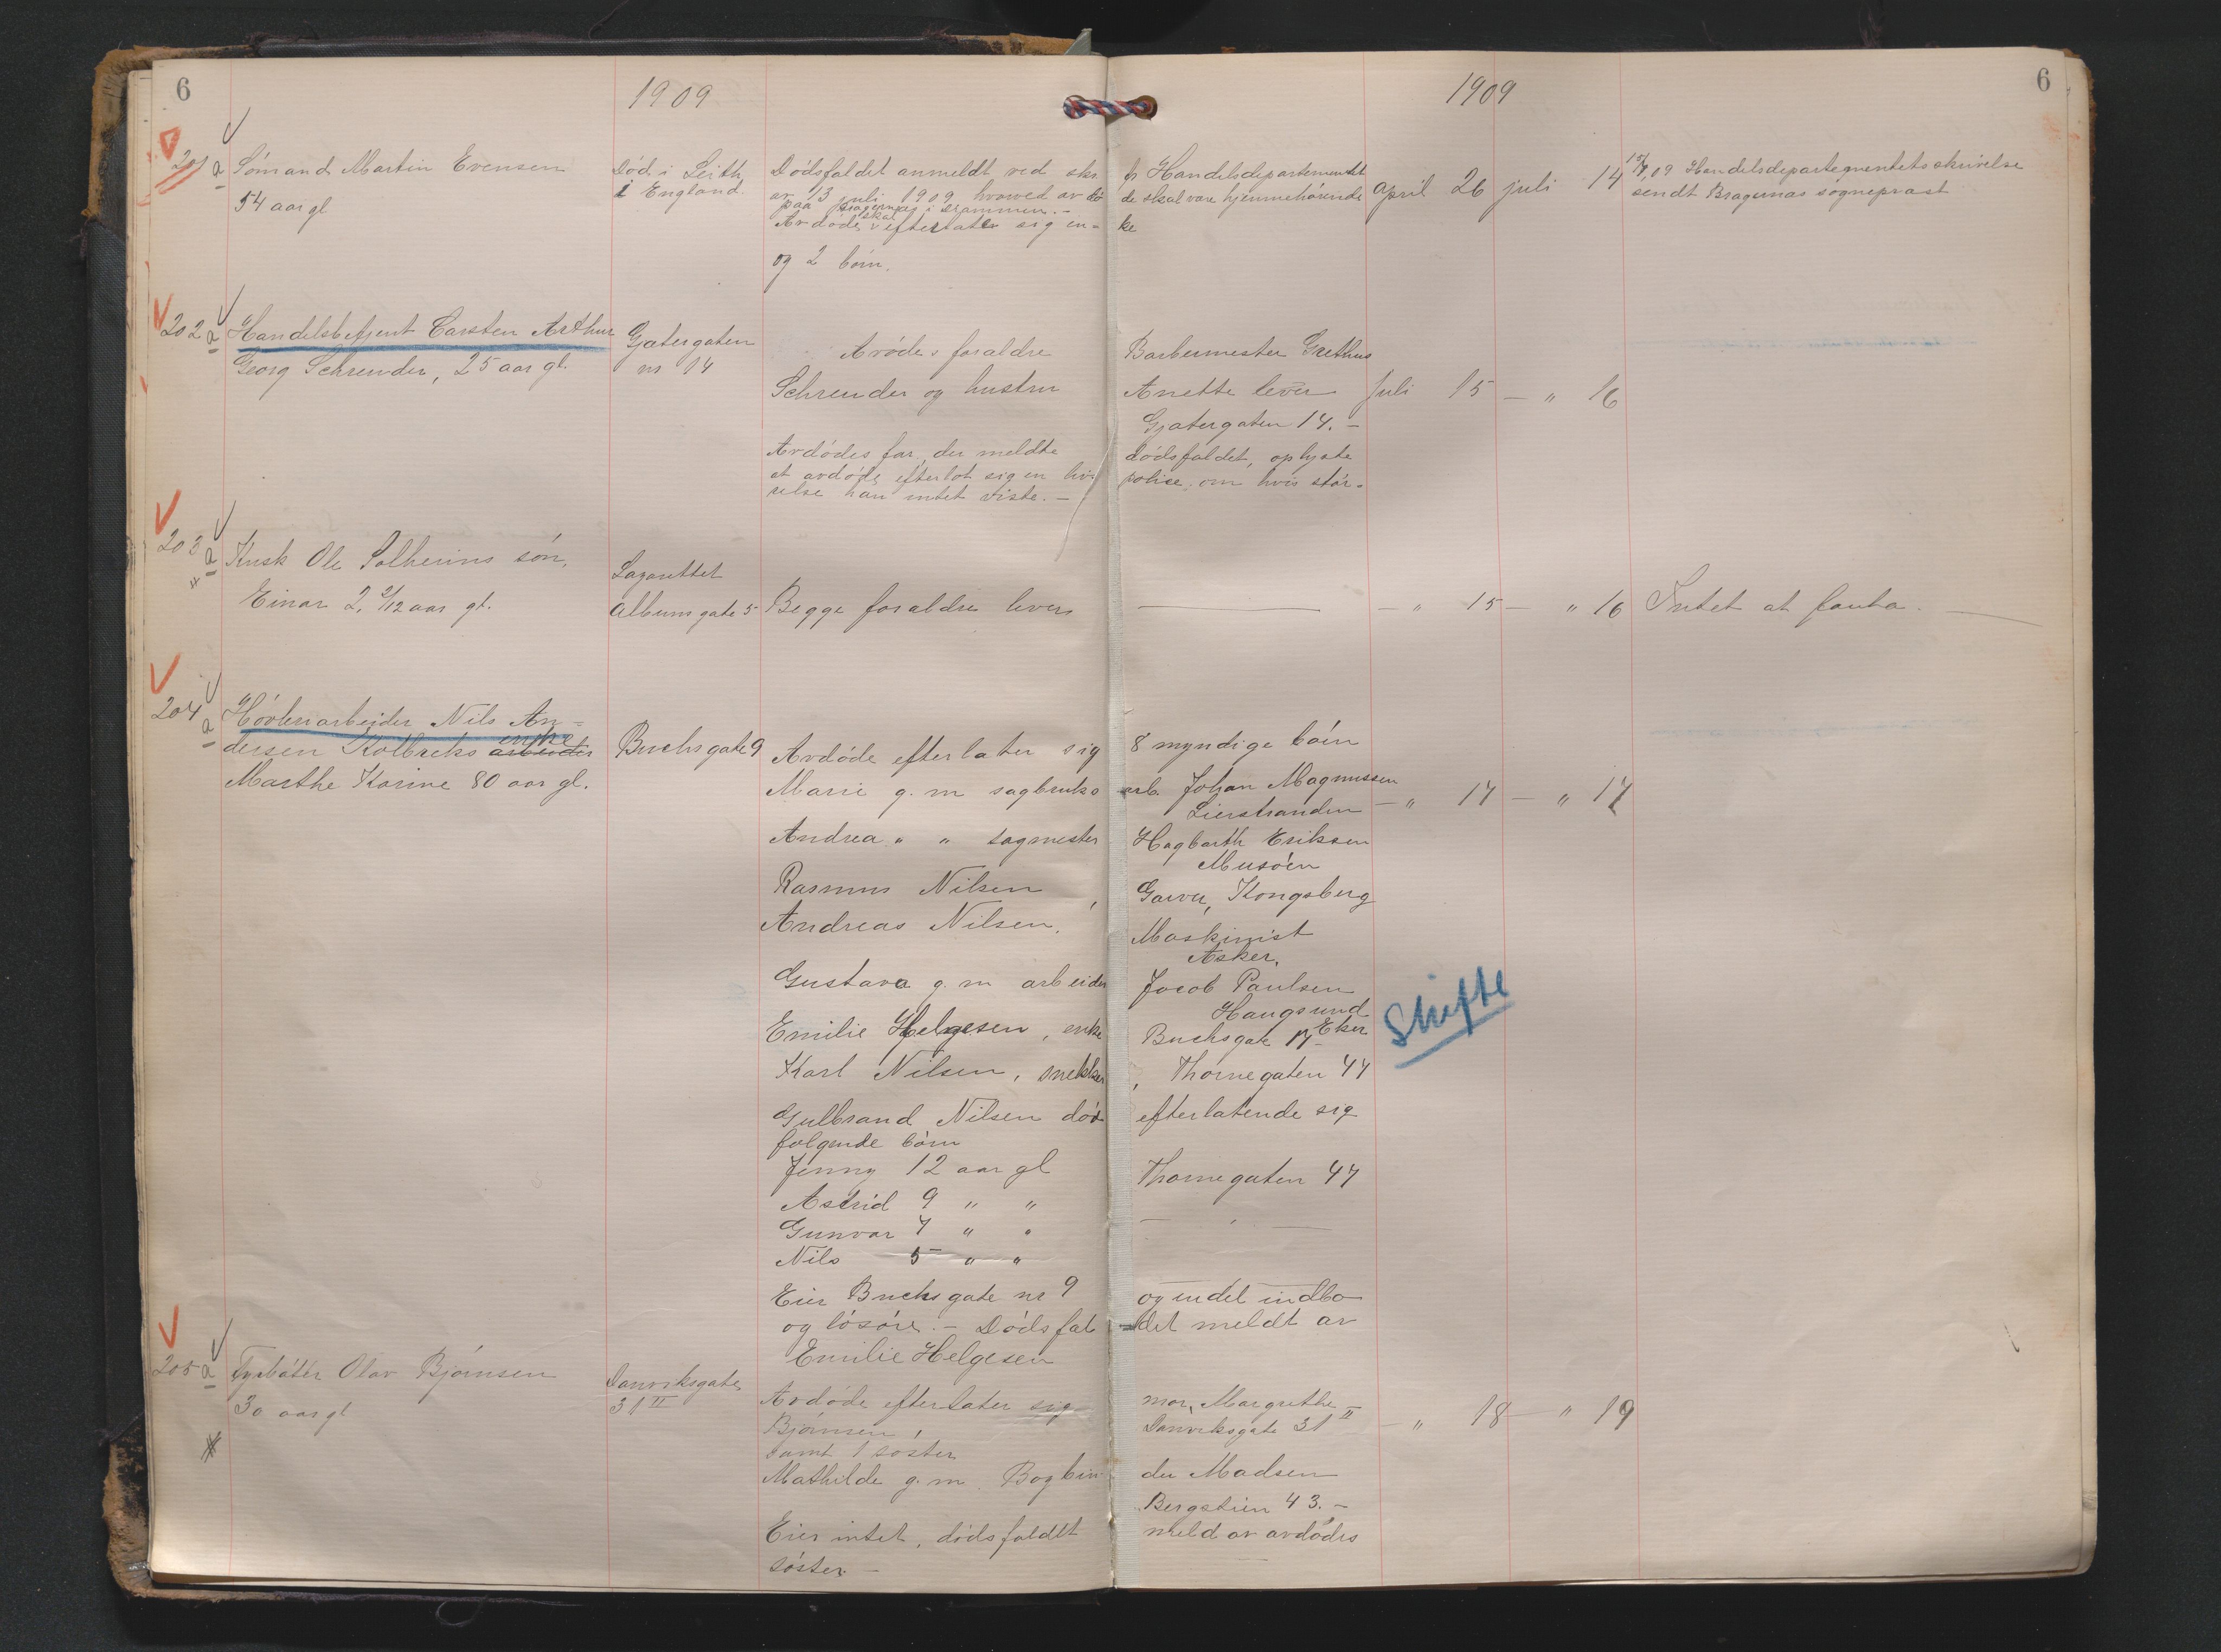 6
1909
1909
6
201 a Sömand Martin Evensen
54 aar gl
Död i Leith
i England.
Dödsfaldet anmeldt ved skr. fr Handelsdepartementet
av 13 juli 1909 hvorved avdö-de skal være hjemmehörende
paa Bragernæs i Drammen. -
Avdöde skal efterlate sig en-ke
og 2 börn.
April 26 juli 14
15/7 09 Handelsdepartementets skrivelse
sendt Bragernæs sogneprest
202 a Handelsbetjent Carsten Arthur
Georg Schreuder, 25 aar gl.
Gjetergaten
nr 14
Avödes foraldre Barbermester Grethus
Schreuder og hustru Anette lever
Gjætergaten 14. -
Juli 15 — " 16
Avdödes far, der meldte dödsfaldet, oplyste
at avdöde efterlot sig en livs police, om hvis stör-
relse han intet viste. -
203 a Kusk Ole Solheims sön,
Einar 2, 2/12 aar gl.
Lazarettet
Albumsgate 5
Begge foraldre lever
— " 15 — " 16 Intet at
204 a Hövleriarbeider Nils An-
dersen Kolbreks arbeider enke
Marthe Karine 80 aar gl.
Buchsgate 9
Avdöde efterlater sig 8 myndige börn
Marie g. m sagbruks arb. Johan Magnussen
Lierstranden
— " 17 — " 17
Andrea " " sagmester Hagbarth Eriksen
Musöen
Rasmus Nilsen, Garver, Kongsberg
Andreas Nilsen, Maskinist
Asker.
Gustava g. m arbeider Jacob Paulsen
Haugsund
Eker
Emilie Helgesen, enke Buchsgate 17
Skifte
Karl Nilsen, snekker, Thornegaten 47
Gulbrand Nilsen död efterlatende sig
folgende börn
Jenny 12 aar gl Thornegaten 47
Astrid 9 " "
Gunvar 7 " "
Nils 5 " "
Eier Buchsgate nr 9 og endel indbo
og lösöre. - Dödsfal-det meldt av
Emilie Helgesen
205 a Fyrböter Olav Björnsen
30 aar gl
Danviksgate
31 II
Avdöde efterlater sig mor, Margrethe
Björnsen, Danviksgate 31 II
— " 18 — " 19
samt 1 soster
Mathilde g. m. Bogbin-der Madsen
Bergstien 43. -
Eier intet, dödsfaldet meld av avdödes
söster. -